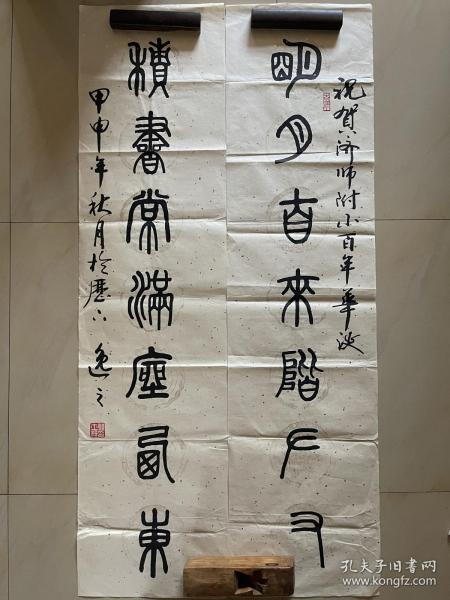 祝賀濟師附小百年華诞
明月旹來階左右
積書常滿座西東
甲申年秋月於歷下 逸之
孔夫子旧书网
www.kongfz.com